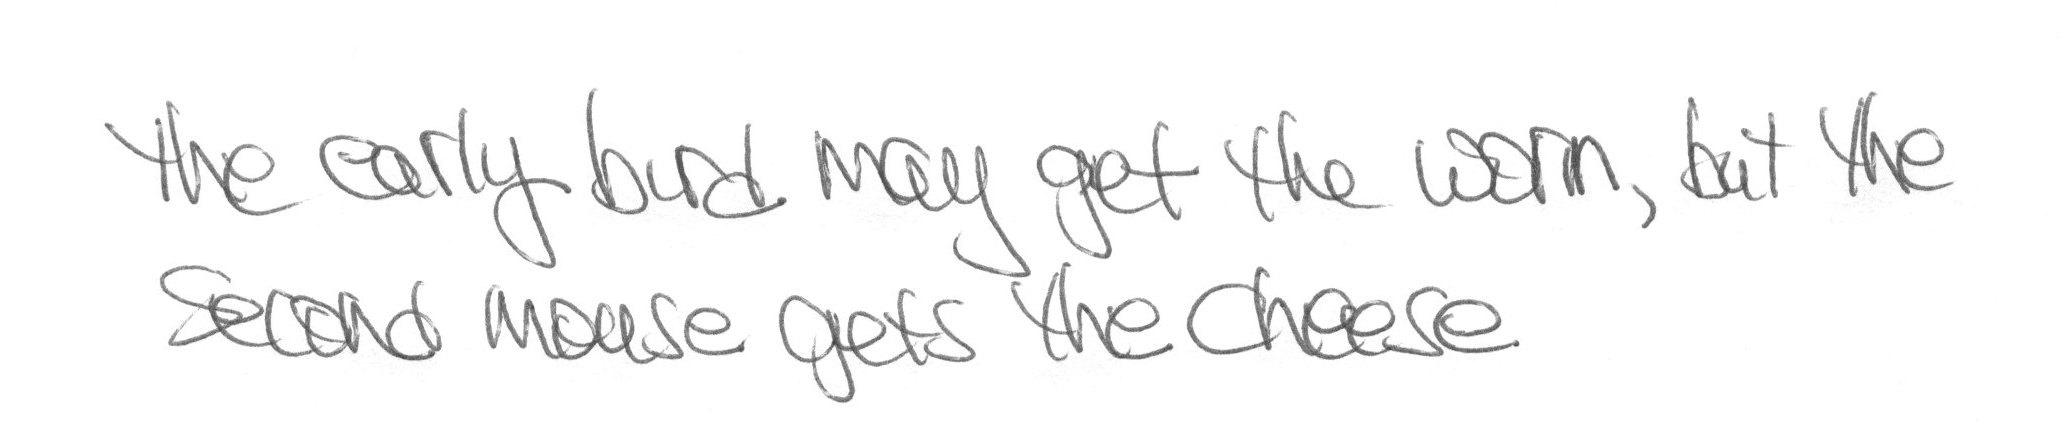 the early bird may get the worm, but the
second mouse gets the cheese